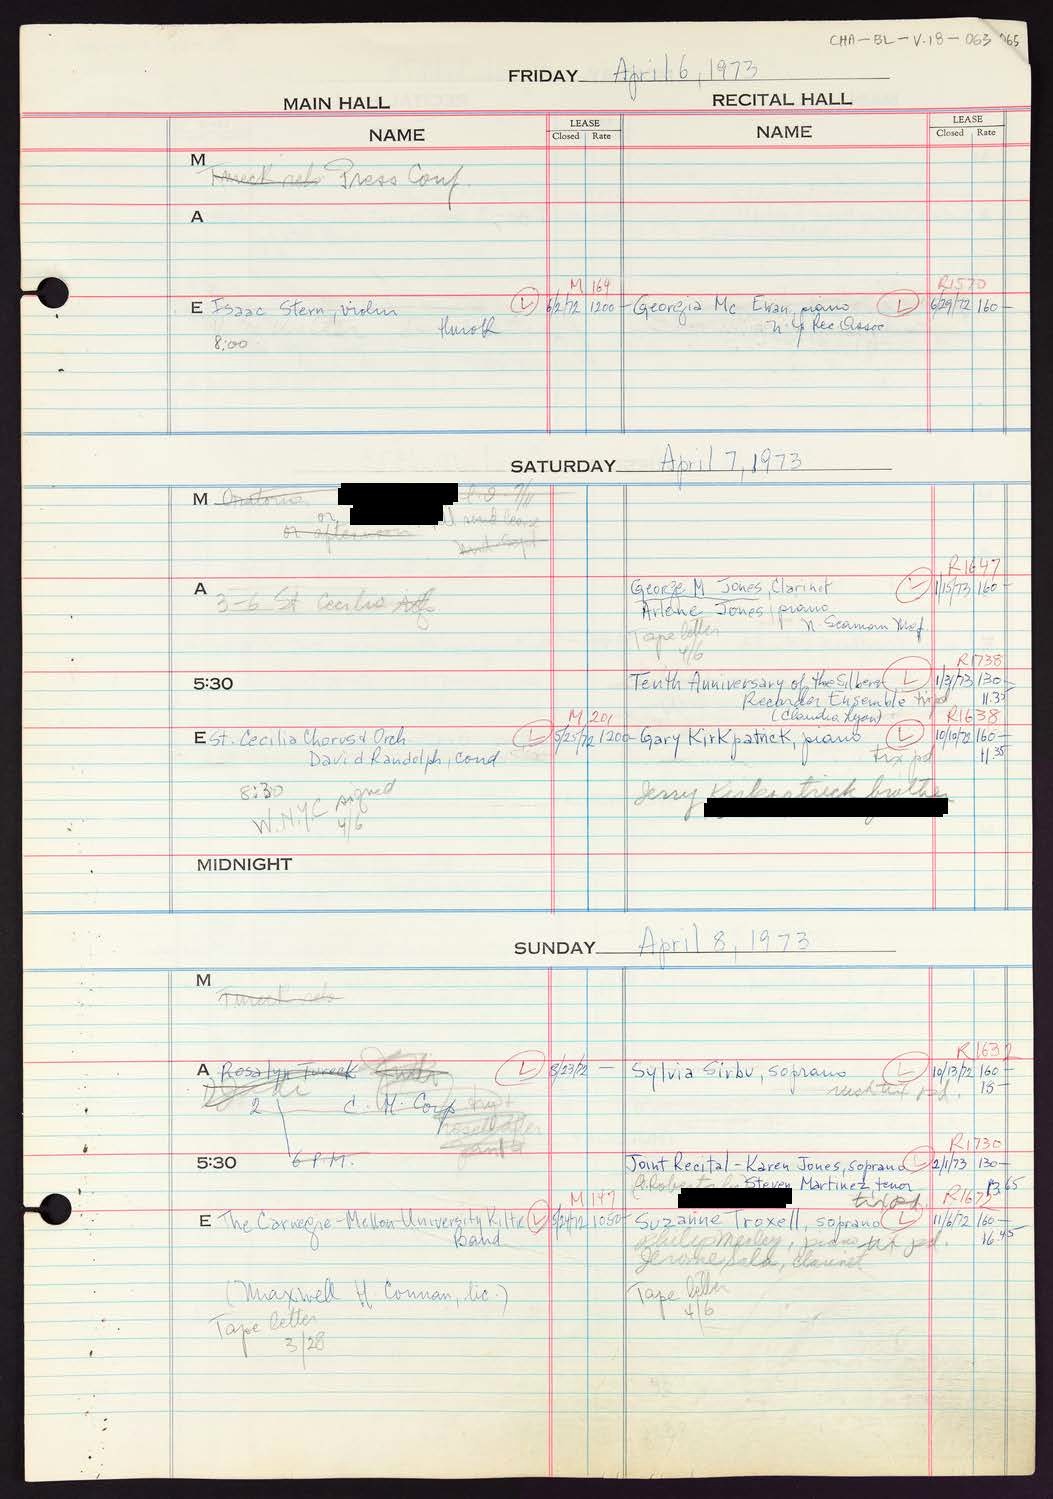 CHA-BL-V.18-063 065
FRIDAY April 6, 1973
MAIN HALL
RECITAL HALL
NAME
LEASE
Closed Rate
NAME
LEASE
Closed Rate
M
Tureck reh. Press Conf.
A
M 164
R1570
E Isaac Stern, violin L 6/2/72 1200- Georgia Mc Ewan, piano L 6/29/72 160-
Hurok
N.Y. Rec Assoc
8:00
SATURDAY April 7, 1973
M Oratorio
or
send lease
or afternoon
until Sept
R1647
A George M Jones, Clarinet L 1/15/73 160-
3-6 St Cecilia
Arlene Jones, piano
N Seaman Mgt.
Tape letter
4/6
R1738
5:30 Tenth Anniversary of the Silbern L 1/3/73 130-
Recorder Ensemble 11.35
(Claudia Lyon)
M 201
R1638
E St. Cecilia Chorus & Orch L 5/25/72 1200- Gary Kirkpatrick, piano L 10/10/72 160-
David Randolph, cond
tix pd 11.35
8:30
W.N.Y.C signed
4/6
Jerry Kirkpatrick brother
MIDNIGHT
SUNDAY April 8, 1973
M
Tureck reh
R 1632
A Rosalyn Tureck L 8/23/72 - Sylvia Sirbu, soprano L 10/13/72 160-
tix pd. 15-
2 C. H. Corp
R1730
5:30 6 P.M. Joint Recital - Karen Jones, soprano L 2/1/73 130-
Steven Martinez, tenor 13.65
tix pd.
M 147
R1675
E The Carnegie-Mellon University Kiltie L 5/24/72 1050- Suzanne Troxell, soprano L 11/6/72 160-
Band
Philip Medley, piano tix pd. 16.45
Jerome Sala, clarinet
(Maxwell H Connan, lic.)
Tape letter
4/6
Tape letter
3/28